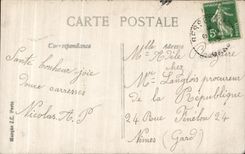 CARTE POSTALE
Correspondance
Santé bonheur joie
douce caresses
Nicolas A. P
Mlle Adèle Rougière
chez
Mr Langlois procureur
de la République
24 Rue Fénelon 24
Nîmes (Gard)
Marque J.C. Paris